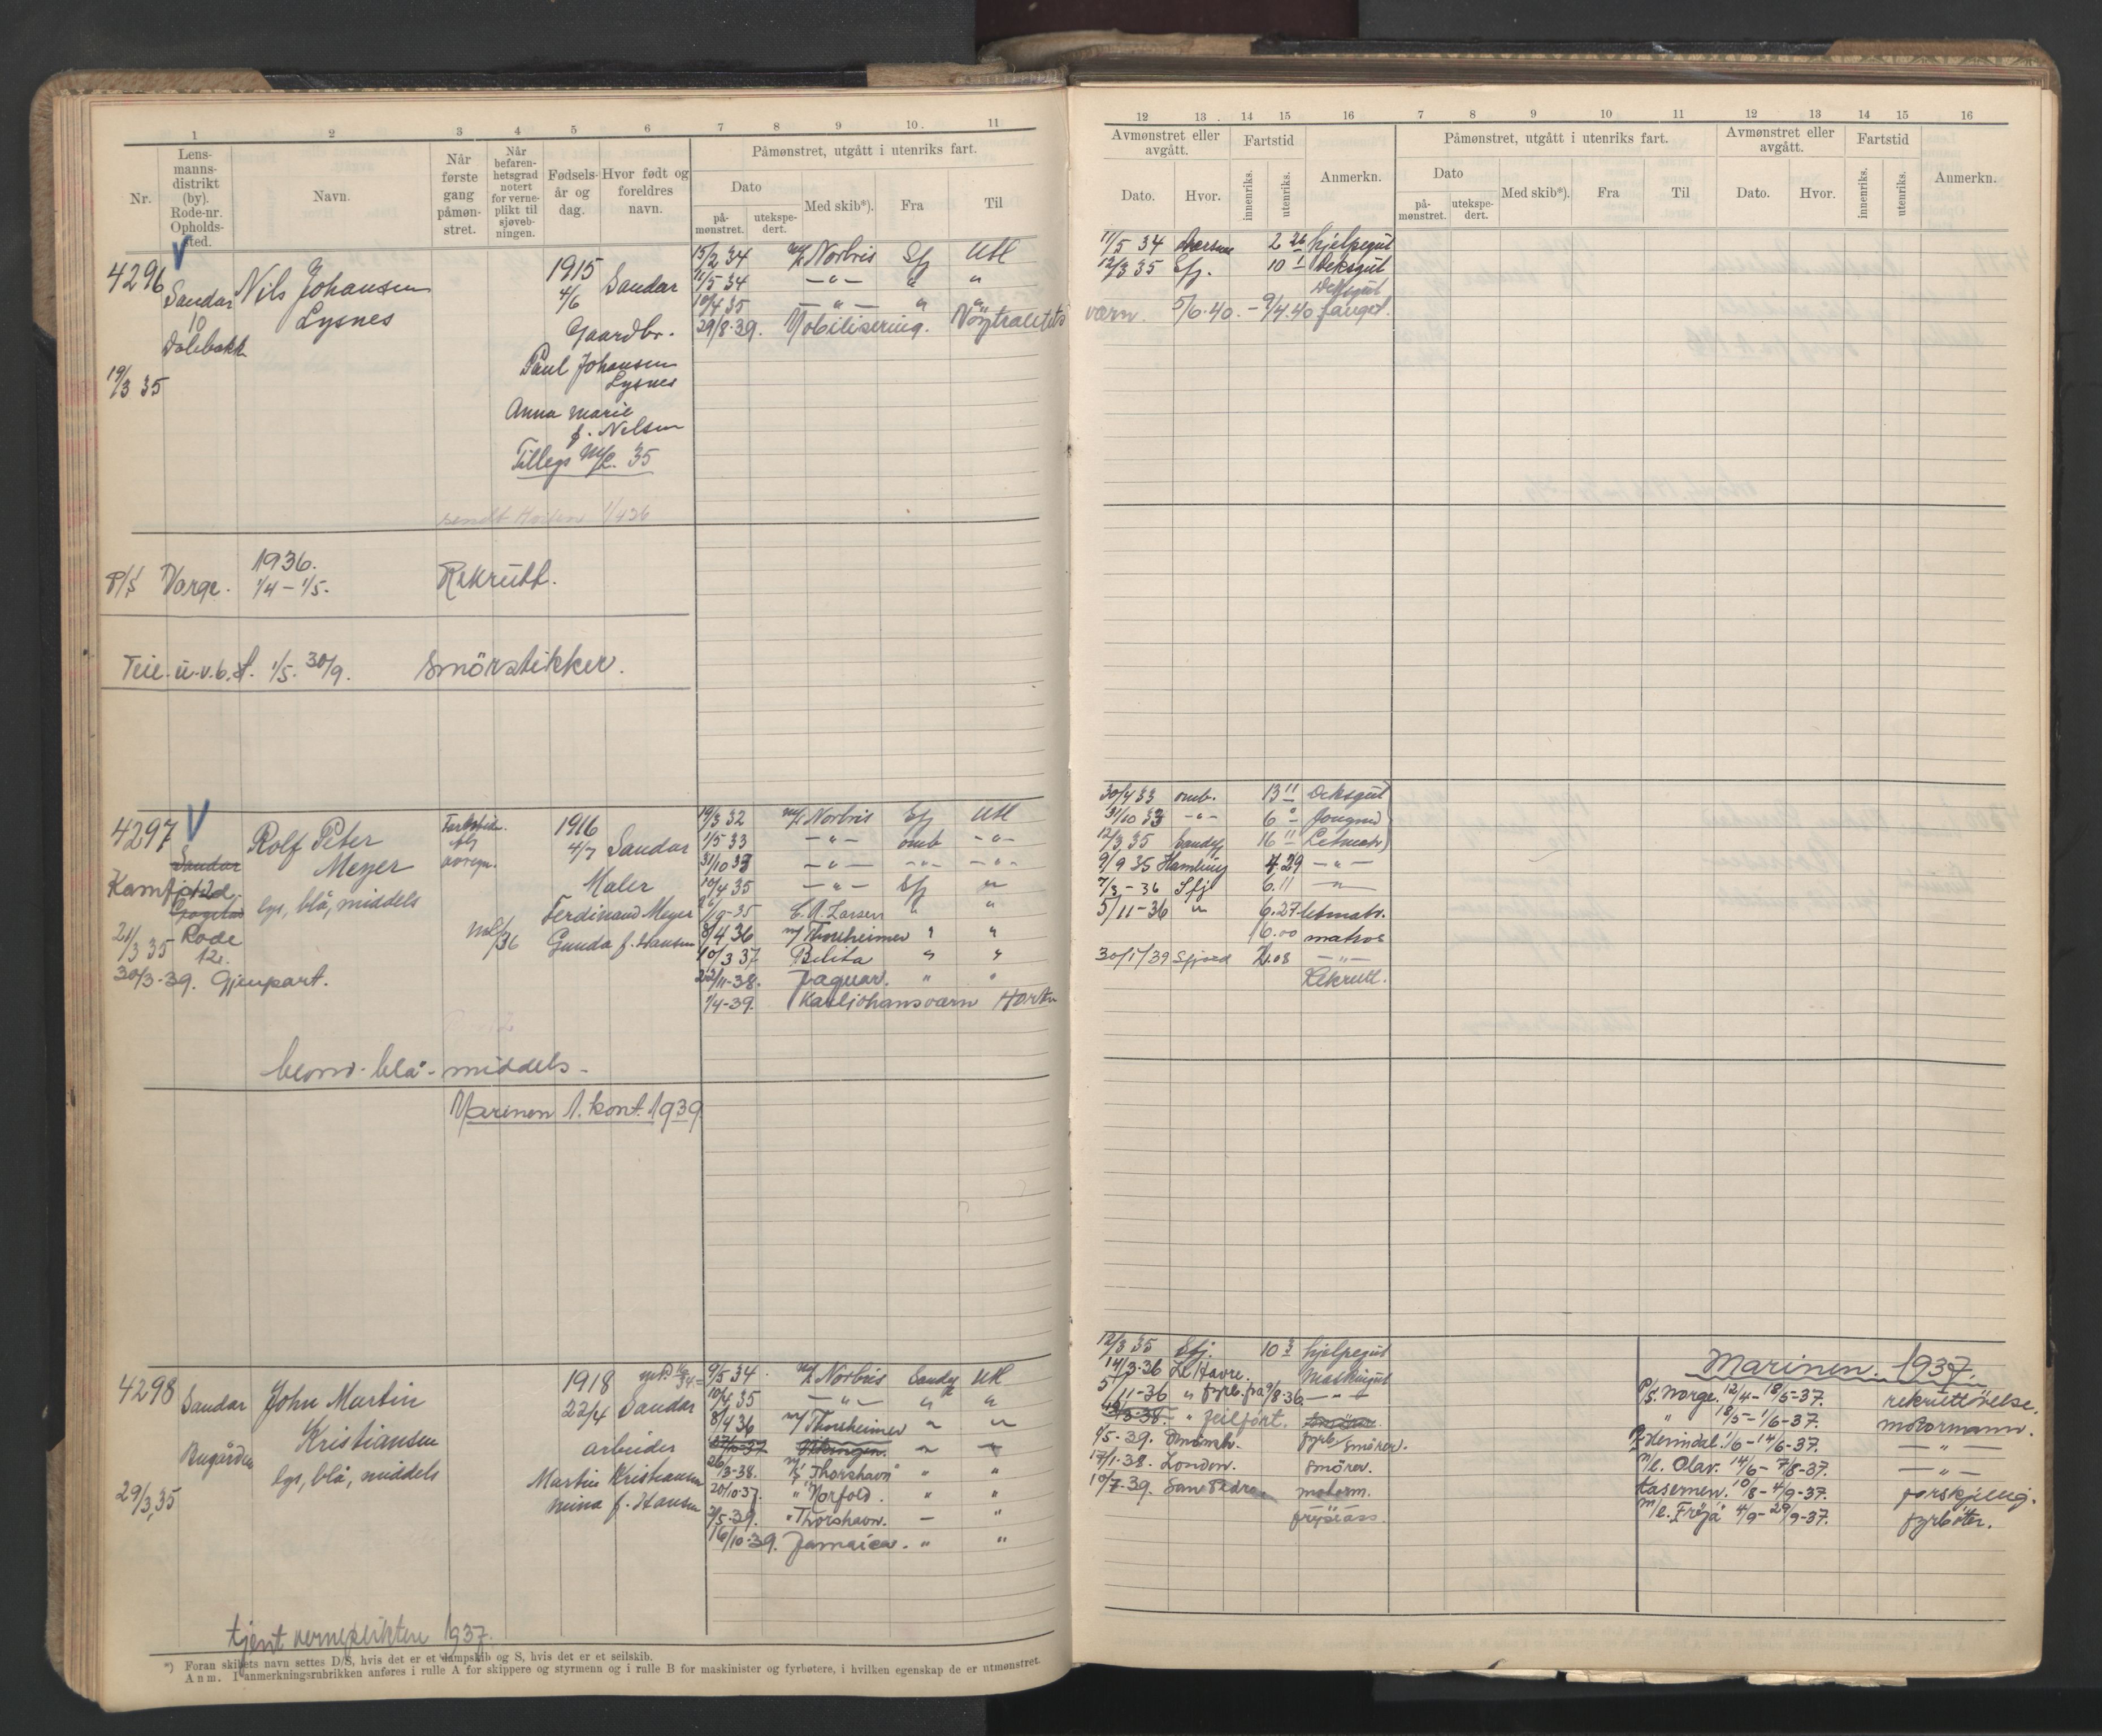 1 2 3 4 5 6 7 8 9 10. 11
Nr.
Lens-
manns-
distrikt
(by).
Rode-nr.
Opholds-
sted.
Navn.
Når
første
gang
påmøn-
stret.
Når
befaren-
hetsgrad
notert
for verne-
plikt til
sjøveb-
ningen.
Fødsels-
år og
dag.
Hvor født og
foreldres
navn.
Påmønstret, utgått i utenriks fart.
Dato
på-
mønstret.
utekspe-
dert.
Med skib*).
Fra
Til
4296
Sandar
10
Dølebakk
19/3 35
Nils Johansen
Lysnes
1915
4/6
Sandar
Gaardbr.
Paul Johansen
Lysnes
Anna Marie
f. Nilsen
Tillegs M/L. 35
sendt Horten 1/4 36
15/2 34 M/S Norbris Sfj Utl
11/5 34 — " — " "
10/4 35 — " — " "
29/8-39. Mobilisering. Nøytralitets
P/S Norge. 1936. 1/4 – 1/5. Rekrutt.
Teie u.v.b.st. 1/5. 30/9. Smörstikker.
4297
Sandar
Kamfjord
21/3 35
Rode
12.
30/3-39. Gjenpart.
Rolf Peter
Meyer
lys, blå, middels
1916
4/7
Sandar
Maler
Ferdinand Meyer
Gunda f. Hansen
19/3 32 M/S Norbris Sfj Utl
1/5 33 — " — omb — " —
31/10 33 — " — — " — — " —
10/4 35 — " — Sfj "
C. A. Larsen " "
8/4 36 m/ Thorsheimer " "
10/3 37 Belita " "
22/11-38. Jaguar. " "
1/4-39. Karljohansvern Horten
blond - blå - middels -
Marinen 1. kont. 1939
4298
Sandar
Bugården
29/3 35
John Martin
Kristiansen
lys, blå, middels
1918
22/4
Sandar
arbeider
Martin Kristiansen
Mina f. Hansen
9/5 34 M/S Norbris Sandefj Utl
10/4 35 — " — " "
8/4 36 m/ Thorsheimer " "
27/10-37 Vikingen. " "
26/3-38. Thorshavn " "
20/10-37. " Norfold. " "
2/5-39. " Thorshavn. — "
16/10-39. Jamaica. " "
tjent verneplikten 1937.
*) Foran skibets navn settes D/S, hvis det er et dampskib og S, hvis det er et seilskib.
Anm. I anmerkningsrubrikken anføres i rulle A for skippere og styrmenn og i rulle B for maskinister og fyrbøtere, i hvilken egenskap de er utmønstret.
12 13. 14 15 16 7 8 9 10 11 12 13 14 15 16
Avmønstret eller
avgått.
Fartstid
Dato.
Hvor.
innenriks.
utenriks.
Anmerkn.
Påmønstret, utgått i utenriks fart.
Dato
på-
mønstret.
utekspe-
dert.
Med skib*).
Fra
Til
Avmønstret eller
avgått.
Fartstid
Dato.
Hvor.
innenriks.
utenriks.
Anmerkn.
11/5 34 2 26 hjelpegut
12/3 35 Sfj. 10 1 Deksgut
Deksgut
værn. 5/6.40. – 9/4.40 fanget.
30/4 33 omb. 13 11 Deksgut
31/10 33 — " — 6 0 Jungmd
12/3 35 Sandefj 16 11 Letmatr
9/9 35 Hamburg 4.29 — " —
7/3-36 Sfj 6.11 — " —
5/11-36 " 6.27 letmatr.
16.00 matros
30/1/39 Sfjord 2.08 — " —
Rekrutt.
12/3 35 Sfj. 10 3 hjelpegut
14/3-36 Le Havre. Maskingut
5/11-36 " fyrb. fra 9/8 36. — " —
" feilført.
1/5-39. Ommönstr. fyrb/smörer.
17/1-38. London. Smörer.
10/7-39. San Pedro. motorm.
fryseass.
Marinen 1937.
P/S. Norge. 12/4 – 18/5-37. rekruttövelse.
" 18/5 – 1/6-37. motormann.
Heimdal. 1/6 – 14/6-37. — " —
m/l. Olav. 14/6 – 7/8-37. — " —
Kasernen. 10/8 – 4/9-37. forskjellig.
m/l. Fröja 4/9 – 29/9-37. fyrböter.